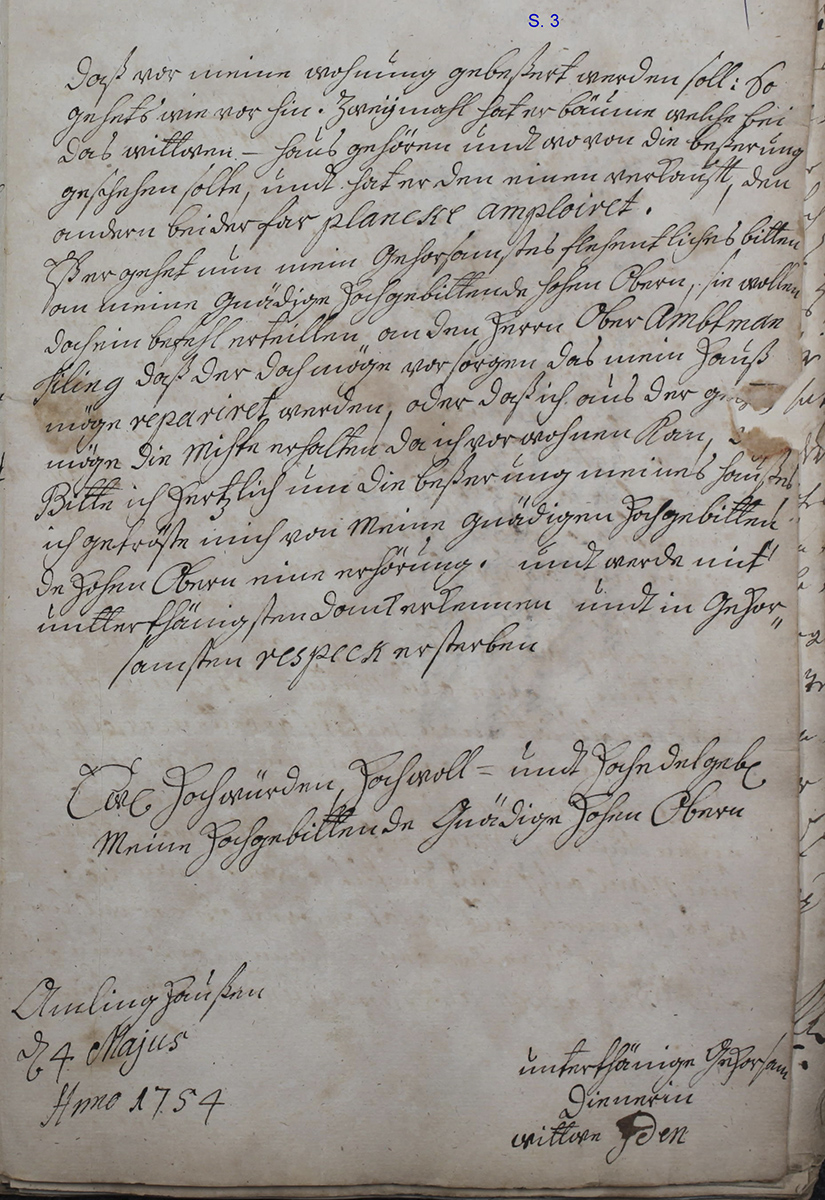 S. 3
daß vor meine wohnung gebeßert werden soll: So
gehets wie vor hin. Zweijmahl hat er bäume welche bei
das wittwen - hauß gehören undt wo von die beßerung
geschehen solte, undt hat er den einen verkaufft, den
andern bei der far plancke amploiret.
Eß ergehet nun mein Gehorsamstes flehentliches bitten
an meine Gnädige Hochgebittende hohen Obern, sie wollen
doch ein befehl erteillen an den Herrn Ober Ambtman
daß der doch möge vorsorgen das mein Hauß
möge repariret werden, oder daß ich aus der
möge die Mihte erhalten da ich vor wohnen kan,
Bitte ich Hertzlich um die beßerung meines Haußes
ich getröste mich von Meine gnädigen Hochgebitten
de Hohen Obern eine erhörung. undt werde mit
untterthänigsten danck erkennen undt in Gehor"
samsten respeck ersterben
Ew. Hochwürden, Hochwoll = undt Hochedelgeb.
Meine Hochgebittende Gnädige Hohen Obern
Amlinghaußen
d 4 Majus
Anno 1754
unterthänige Gehorsam
Dienerin
wittwe